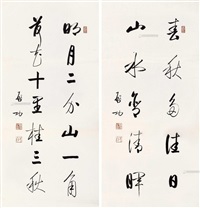 春秋多佳日
山水含清暉
启功
明月二分山一角
荷花十里桂三秋
启功